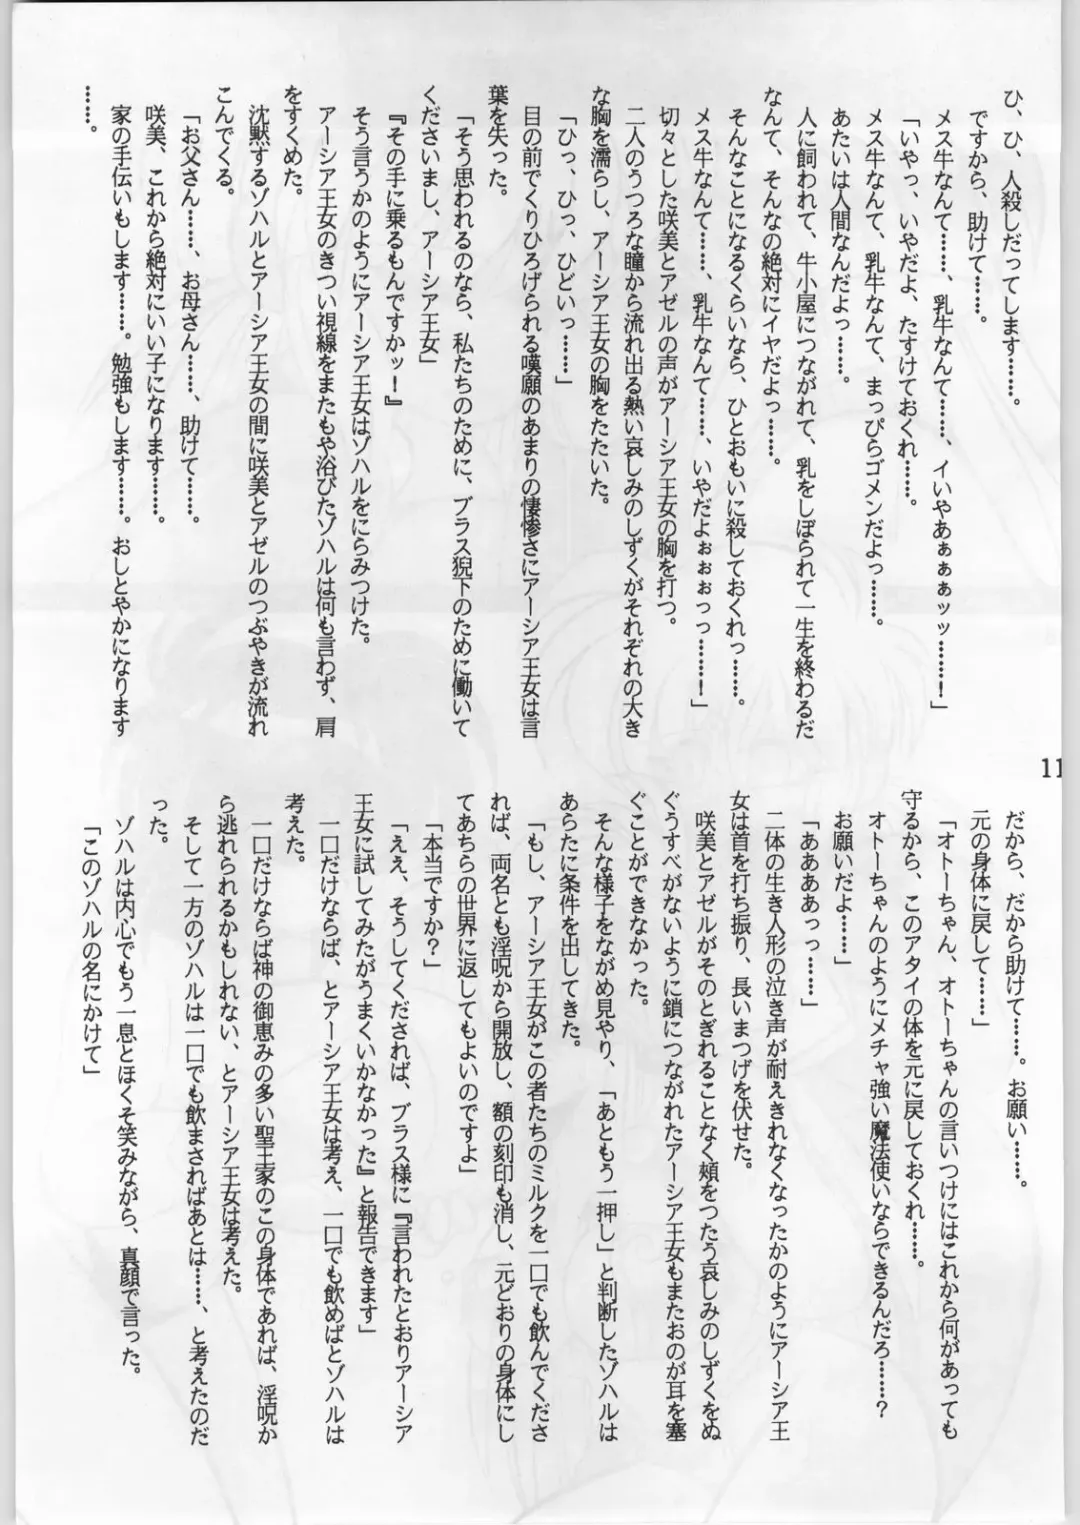 ひ、ひ、人殺しだってします……。
ですから、助けて……。
メス牛なんて……、乳牛なんて……、イいやあぁぁぁッッ………！」
「いやっ、いやだよ、たすけておくれ……。
メス牛なんて、乳牛なんて、まっぴらゴメンだよっ……。
あたいは人間なんだよっ……。
人に飼われて、牛小屋につながれて、乳をしぼられて一生を終わるだ
なんて、そんなの絶対にイヤだよっ……。
そんなことになるくらいなら、ひとおもいに殺しておくれっ……。
メス牛なんて……、乳牛なんて……、いやだよぉぉぉっっ………！」
切々とした咲美とアゼルの声がアーシア王女の胸を打つ。
二人のうつろな瞳から流れ出る熱い哀しみのしずくがそれぞれの大き
な胸を濡らし、アーシア王女の胸をたたいた。
「ひっ、ひっ、ひどいっ……」
目の前でくりひろげられる嘆願のあまりの悽惨さにアーシア王女は言
葉を失った。
「そう思われるのなら、私たちのために、ブラス猊下のために働いて
くださいまし、アーシア王女」
『その手に乗るもんですかッ！』
そう言うかのようにアーシア王女はゾハルをにらみつけた。
アーシア王女のきつい視線をまたもや浴びたゾハルは何も言わず、肩
をすくめた。
沈黙するゾハルとアーシア王女の間に咲美とアゼルのつぶやきが流れ
こんでくる。
「お父さん……、お母さん……、助けて……。
咲美、これから絶対にいい子になります……。
家の手伝いもします……。勉強もします……。おしとやかになります
……。
11
だから、だから助けて……。お願い……。
元の身体に戻して……」
「オトーちゃん、オトーちゃんの言いつけにはこれから何があっても
守るから、このアタイの体を元に戻しておくれ……。
オトーちゃんのようにメチャ強い魔法使いならできるんだろ……？
お願いだよ……」
「ああああっっ……」
二体の生き人形の泣き声が耐えきれなくなったかのようにアーシア王
女は首を打ち振り、長いまつげを伏せた。
咲美とアゼルがそのとぎれることなく頬をつたう哀しみのしずくをぬ
ぐうすべがないように鎖につながれたアーシア王女もまたおのが耳を塞
ぐことができなかった。
そんな様子をながめ見やり、「あともう一押し」と判断したゾハルは
あらたに条件を出してきた。
「もし、アーシア王女がこの者たちのミルクを一口でも飲んでくださ
れば、両名とも淫呪から開放し、額の刻印も消し、元どおりの身体にし
てあちらの世界に返してもよいのですよ」
「本当ですか？」
「ええ、そうしてくだされば、ブラス様に『言われたとおりアーシア
王女に試してみたがうまくいかなかった』と報告できます」
一口だけならば、とアーシア王女は考え、一口でも飲めばとゾハルは
考えた。
一口だけならば神の御恵みの多い聖王家のこの身体であれば、淫呪か
ら逃れられるかもしれない、とアーシア王女は考えた。
そして一方のゾハルは一口でも飲まされればあとは……、と考えたのだ
った。
ゾハルは内心でもう一息とほくそ笑みながら、真顔で言った。
「このゾハルの名にかけて」